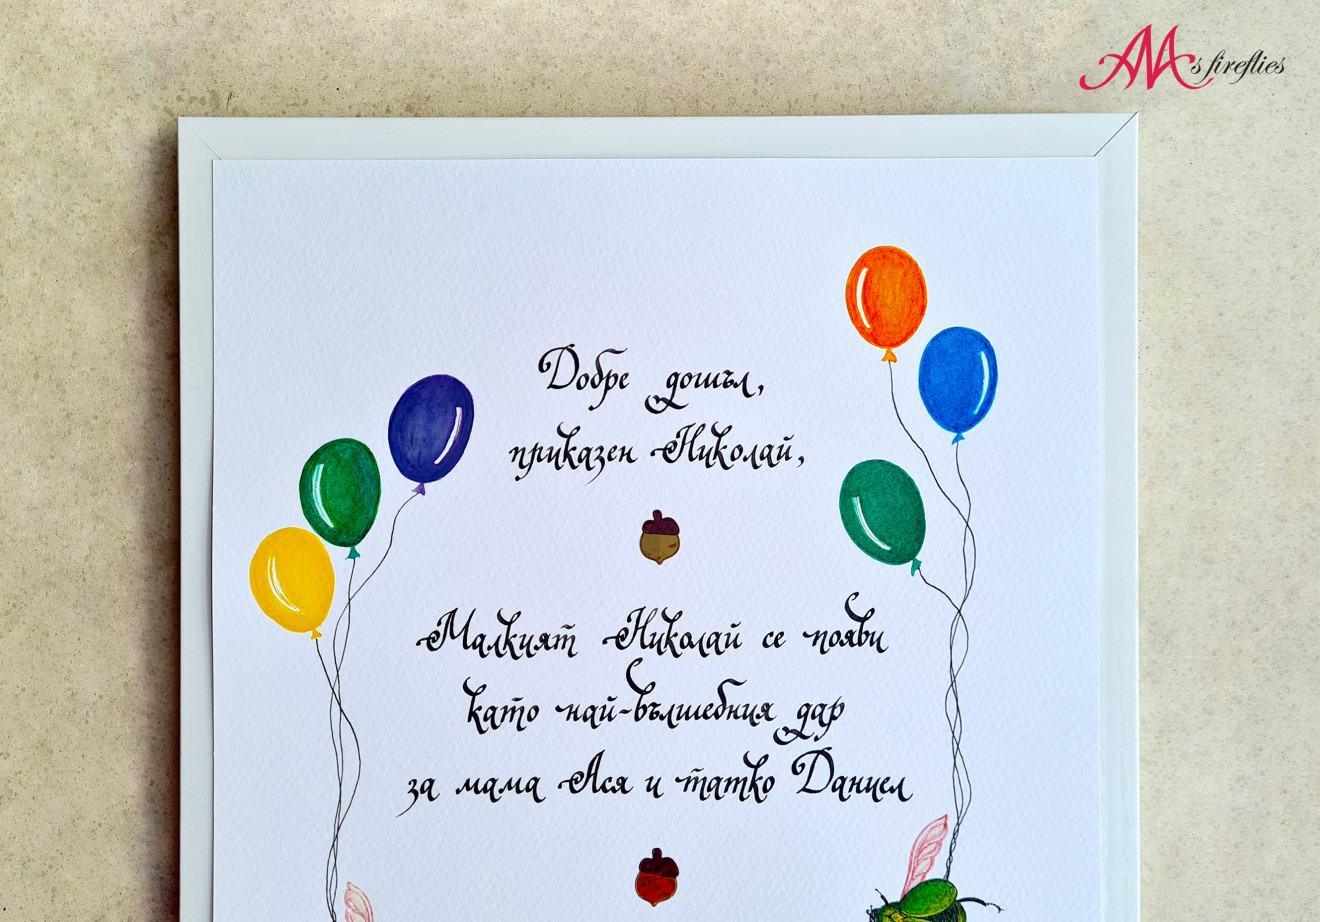 AAA's fireflies
Добре дошъл,
приказен Николай,
Малкият Николай се появи
като най-вълшебния дар
за мама Ася и татко Даниел